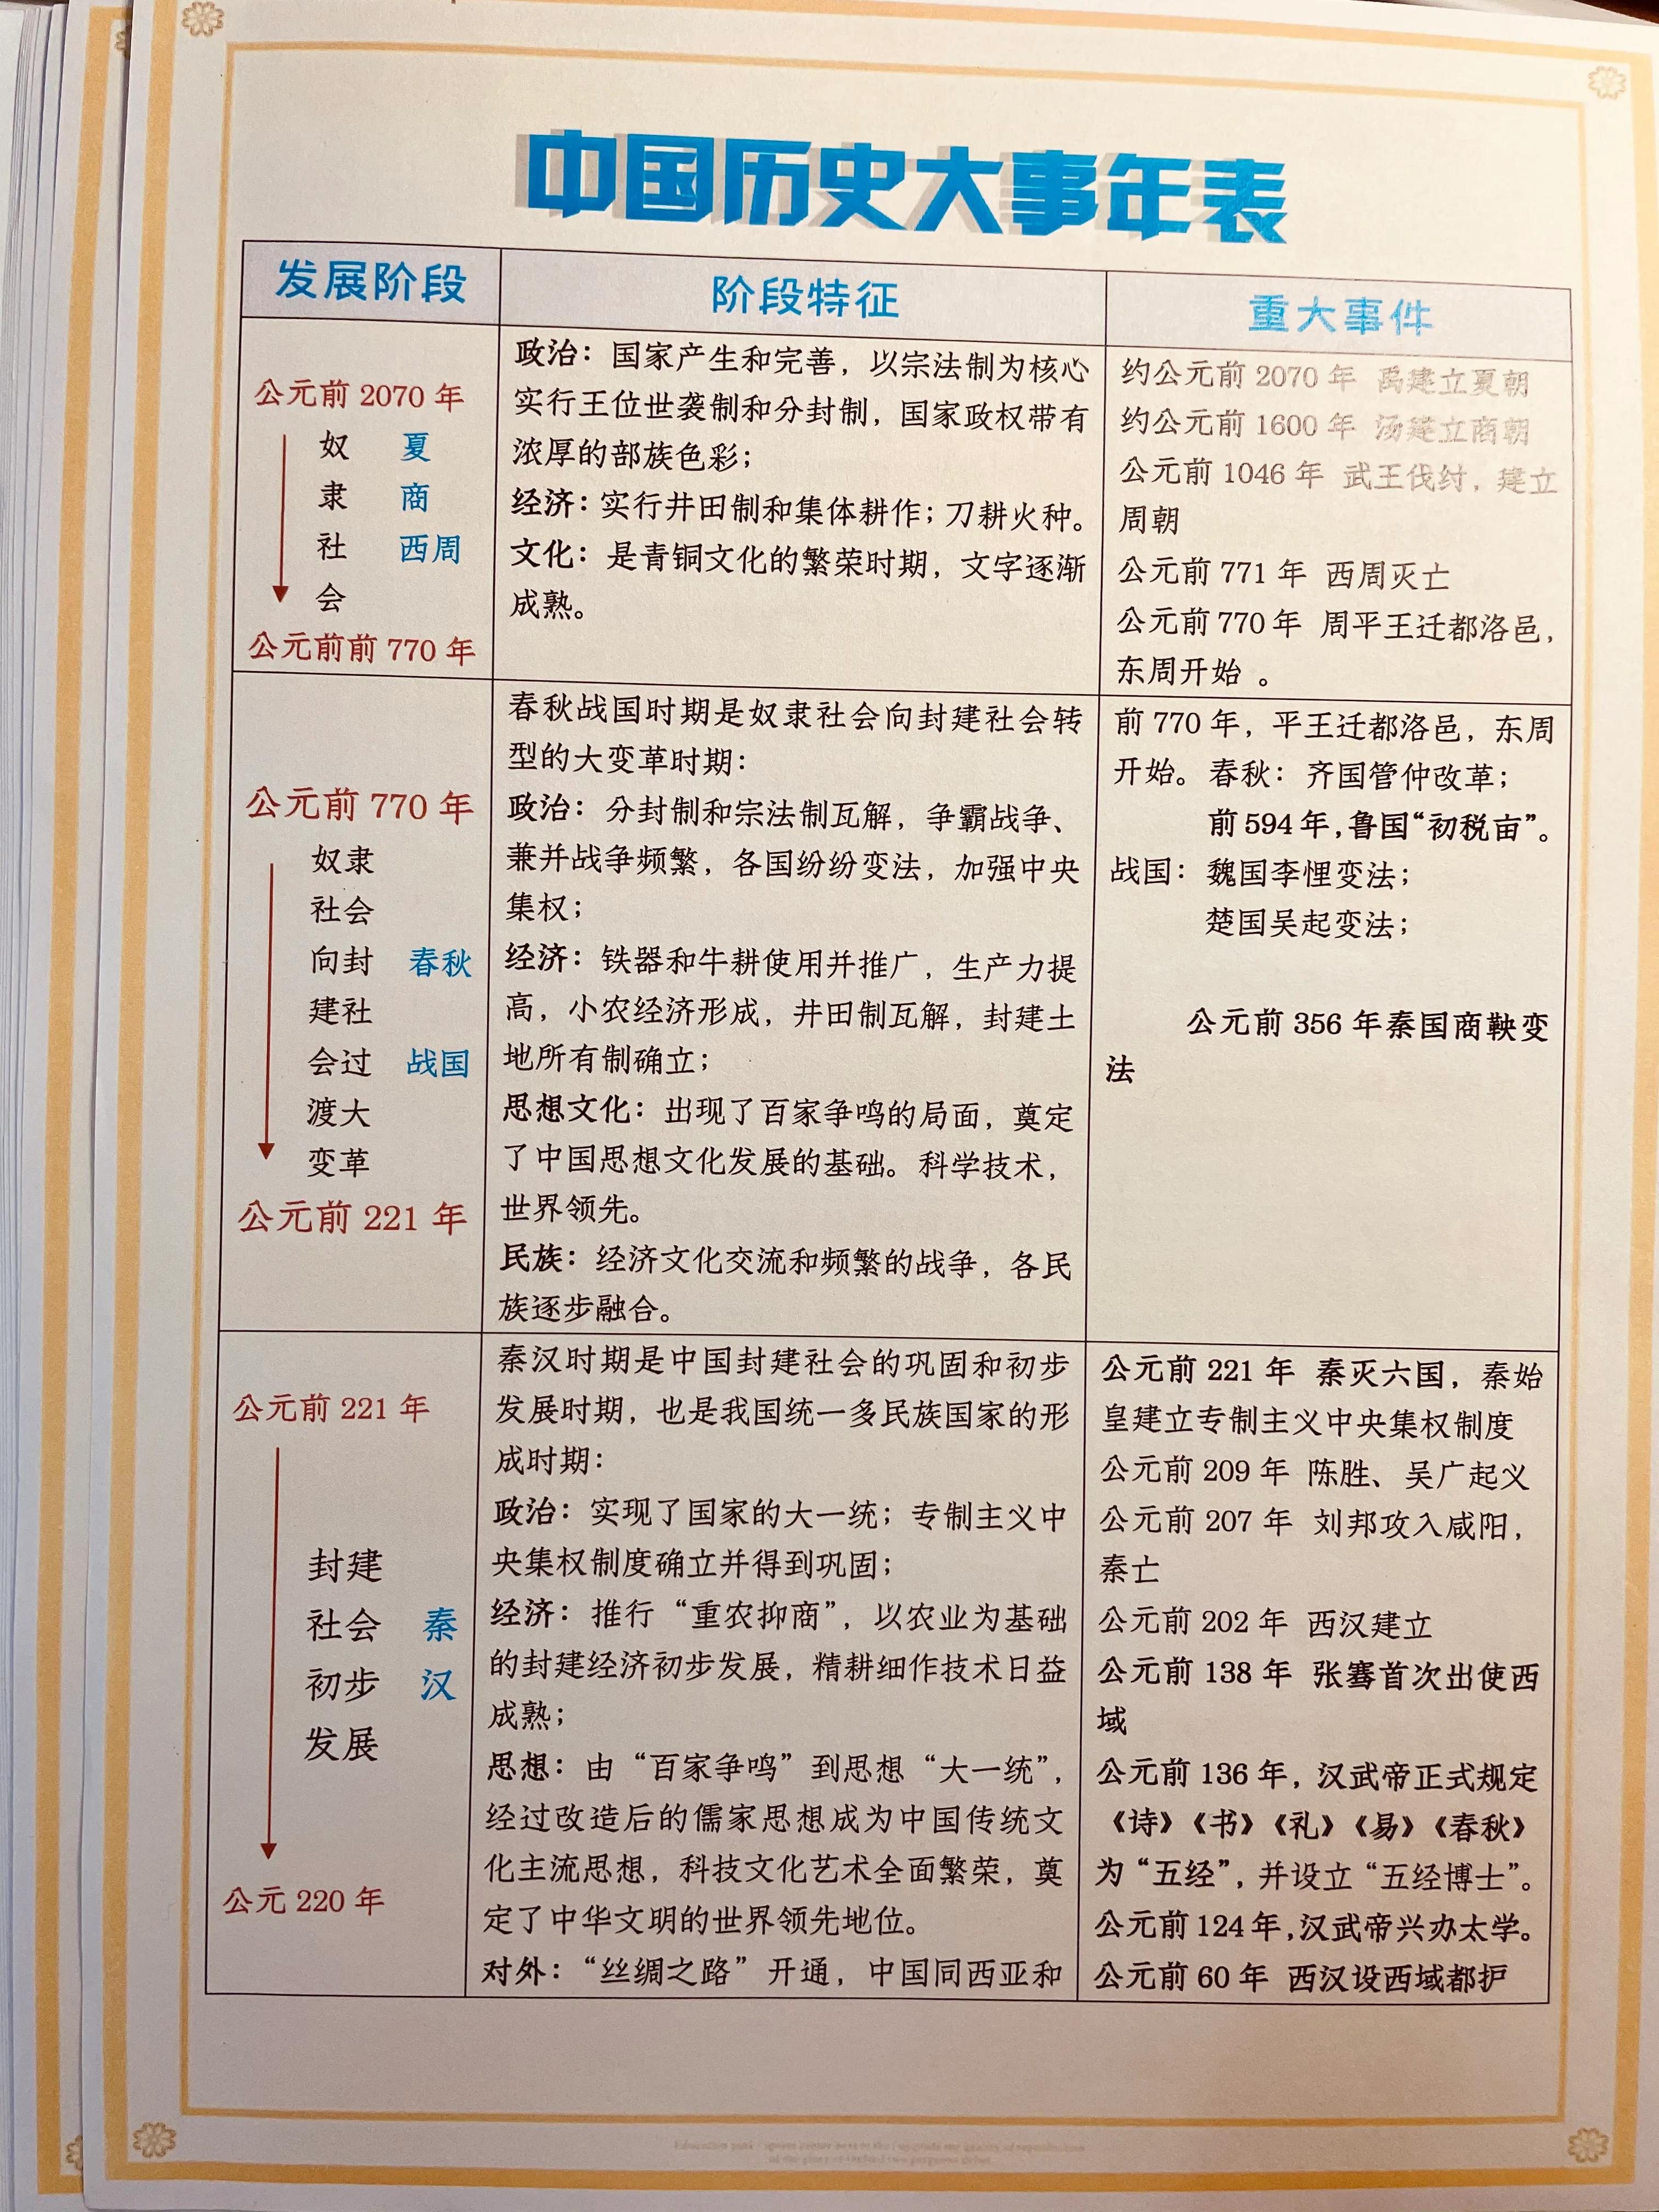 中国历史大事年表
发展阶段
阶段特征
重大事件
公元前 2070 年
奴 夏
隶 商
社 西周
会
公元前前 770 年
政治：国家产生和完善，以宗法制为核心
实行王位世袭制和分封制，国家政权带有
浓厚的部族色彩；
经济：实行井田制和集体耕作；刀耕火种。
文化：是青铜文化的繁荣时期，文字逐渐
成熟。
约公元前 2070 年 禹建立夏朝
约公元前 1600 年 汤建立商朝
公元前 1046 年 武王伐纣，建立
周朝
公元前 771 年 西周灭亡
公元前 770 年 周平王迁都洛邑，
东周开始 。
公元前 770 年
奴隶
社会
向封 春秋
建社
会过 战国
渡大
变革
公元前 221 年
春秋战国时期是奴隶社会向封建社会转
型的大变革时期：
政治：分封制和宗法制瓦解，争霸战争、
兼并战争频繁，各国纷纷变法，加强中央
集权；
经济：铁器和牛耕使用并推广，生产力提
高，小农经济形成，井田制瓦解，封建土
地所有制确立；
思想文化：出现了百家争鸣的局面，奠定
了中国思想文化发展的基础。科学技术，
世界领先。
民族：经济文化交流和频繁的战争，各民
族逐步融合。
前 770 年，平王迁都洛邑，东周
开始。春秋：齐国管仲改革；
前 594 年，鲁国“初税亩”。
战国：魏国李悝变法；
楚国吴起变法；
公元前 356 年秦国商鞅变
法
公元前 221 年
封建
社会 秦
初步 汉
发展
公元 220 年
秦汉时期是中国封建社会的巩固和初步
发展时期，也是我国统一多民族国家的形
成时期：
政治：实现了国家的大一统；专制主义中
央集权制度确立并得到巩固；
经济：推行“重农抑商”，以农业为基础
的封建经济初步发展，精耕细作技术日益
成熟；
思想：由“百家争鸣”到思想“大一统”，
经过改造后的儒家思想成为中国传统文
化主流思想，科技文化艺术全面繁荣，奠
定了中华文明的世界领先地位。
对外：“丝绸之路”开通，中国同西亚和
公元前 221 年 秦灭六国，秦始
皇建立专制主义中央集权制度
公元前 209 年 陈胜、吴广起义
公元前 207 年 刘邦攻入咸阳，
秦亡
公元前 202 年 西汉建立
公元前 138 年 张骞首次出使西
域
公元前 136 年，汉武帝正式规定
《诗》《书》《礼》《易》《春秋》
为“五经”，并设立“五经博士”。
公元前 124 年，汉武帝兴办太学。
公元前 60 年 西汉设西域都护